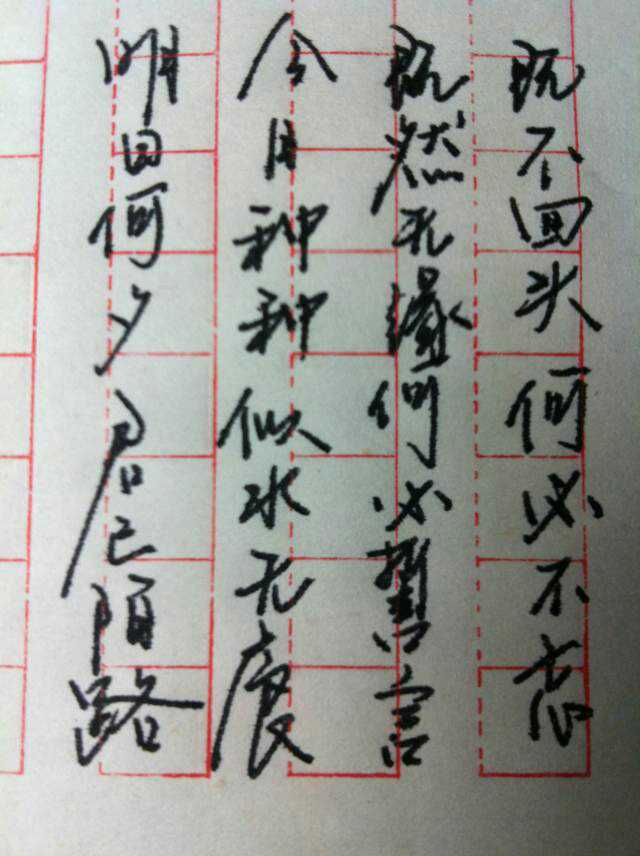 既不回头何必不忘
既然无缘何必誓言
今日种种似水无痕
明日何夕君已陌路